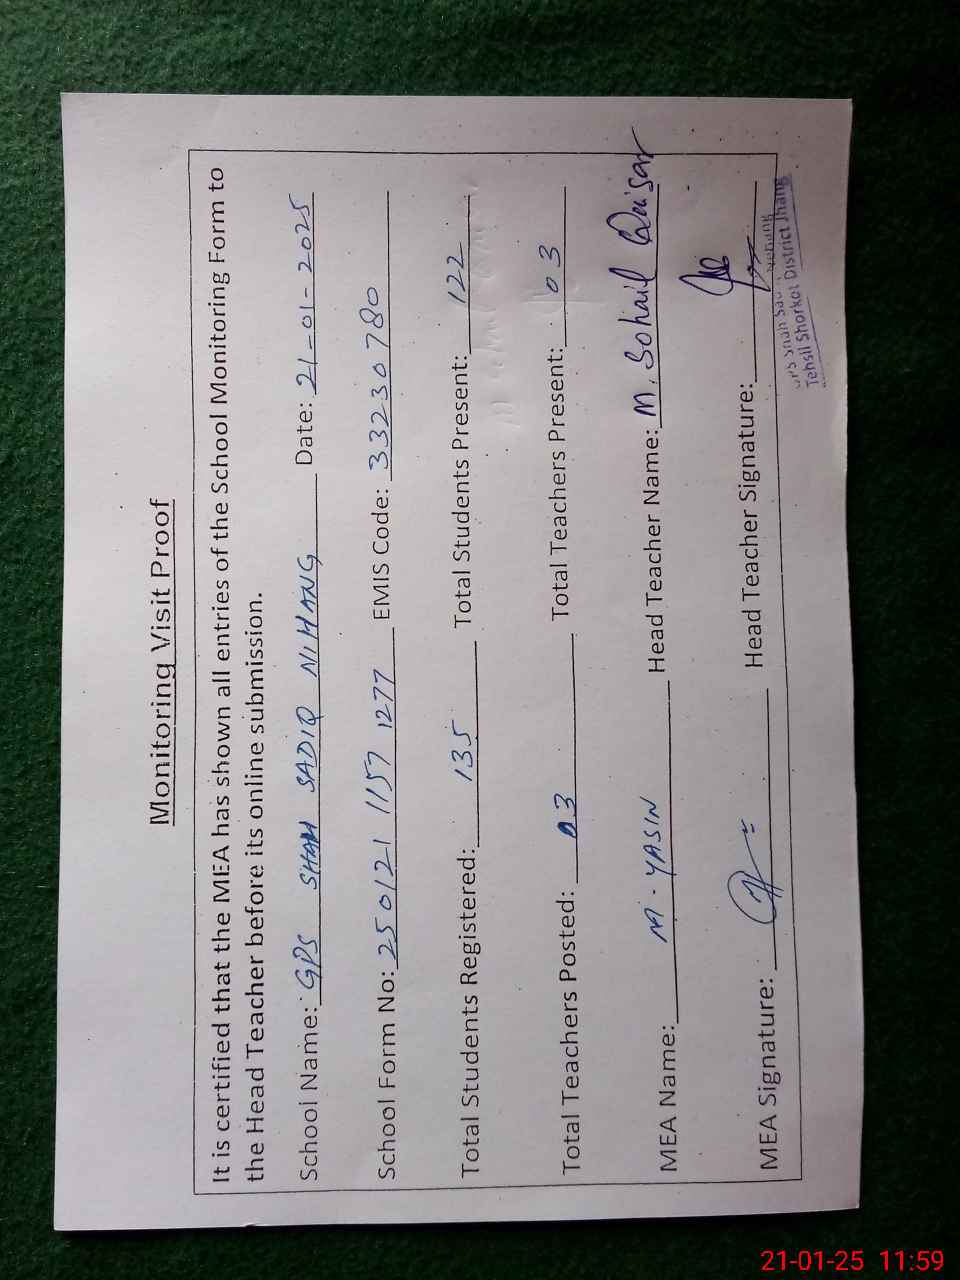 Monitoring Visit Proof
It is certified that the MEA has shown all entries of the School Monitoring Form to
the Head Teacher before its online submission.
School Name: GPS SHAH SADIQ NIHANG Date: 21-01-2025
School Form No: 250121 1157 1277 EMIS Code: 33230780
Total Students Registered: 135 Total Students Present: 122
Total Teachers Posted: 03 Total Teachers Present: 03
MEA Name: M. YASIN Head Teacher Name: M. Sohail Qaisar
MEA Signature: Head Teacher Signature:
Shah
Tehsil Shorkot District Jhang
21-01-25 11:59